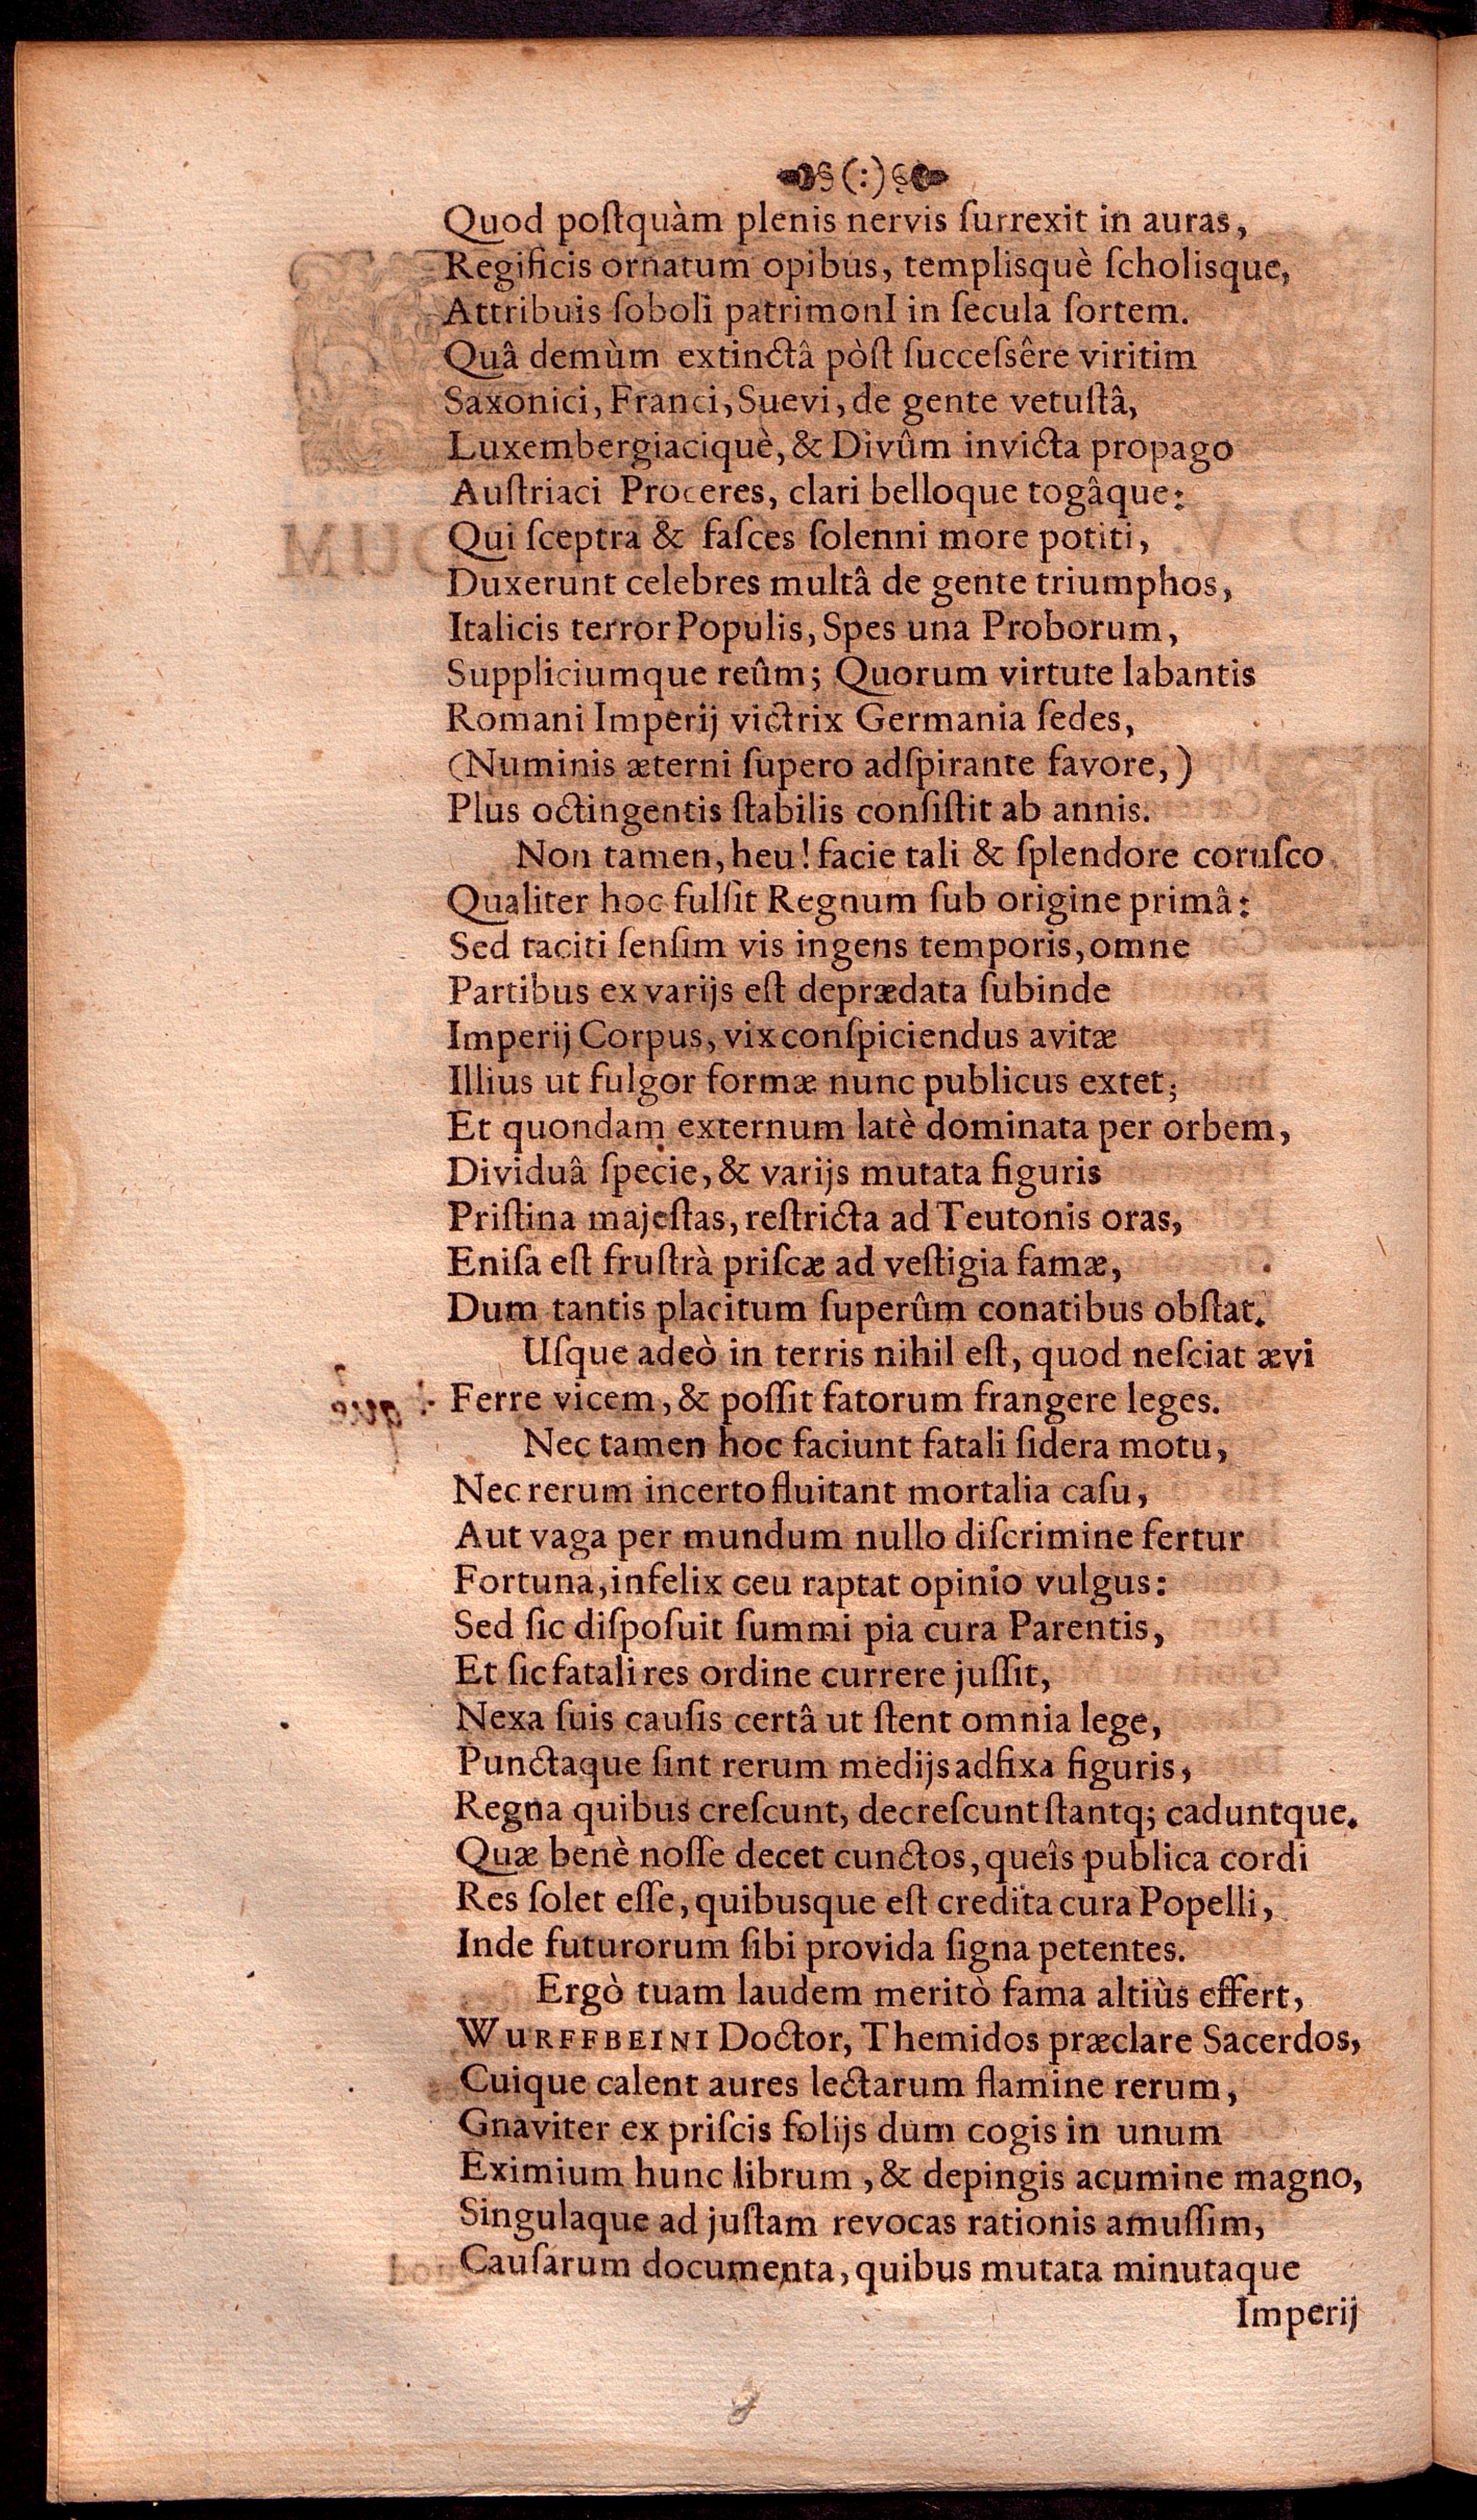 (:)
Quod poſtquàm plenis nervis ſurrexit in auras,
Regificis ornatum opibus, templisquè ſcholisque,
Attribuis ſoboli patrimonI in ſecula ſortem.
Quâ demùm extinctâ pòſt ſucceſsêre viritim
Saxonici, Franci, Suevi, de gente vetuſtâ,
Luxembergiaciquè, & Divûm invicta propago
Auſtriaci Proceres, clari belloque togâque:
Qui ſceptra & faſces ſolenni more potiti,
Duxerunt celebres multâ de gente triumphos,
Italicis terror Populis, Spes una Proborum,
Suppliciumque reûm; Quorum virtute labantis
Romani Imperij victrix Germania ſedes,
(Numinis æterni ſupero adſpirante favore,)
Plus octingentis ſtabilis conſiſtit ab annis.
Non tamen, heu! facie tali & ſplendore coruſco
Qualiter hoc fulſit Regnum ſub origine primâ:
Sed taciti ſenſim vis ingens temporis, omne
Partibus ex varijs eſt deprædata ſubinde
Imperij Corpus, vix conſpiciendus avitæ
Illius ut fulgor formæ nunc publicus extet;
Et quondam externum latè dominata per orbem,
Dividuâ ſpecie, & varijs mutata figuris
Priſtina majeſtas, reſtricta ad Teutonis oras,
Eniſa eſt fruſtrà priſcæ ad veſtigia famæ,
Dum tantis placitum ſuperûm conatibus obſtat.
Uſque adeò in terris nihil eſt, quod neſciat ævi
Ferre vicem, & poſſit fatorum frangere leges.
Nec tamen hoc faciunt fatali ſidera motu,
Nec rerum incerto fluitant mortalia caſu,
Aut vaga per mundum nullo diſcrimine fertur
Fortuna, infelix ceu raptat opinio vulgus:
Sed ſic diſpoſuit ſummi pia cura Parentis,
Et ſic fatali res ordine currere juſſit,
Nexa ſuis cauſis certâ ut ſtent omnia lege,
Punctaque ſint rerum medijs adfixa figuris,
Regna quibus creſcunt, decreſcunt ſtantq; caduntque.
Quæ benè noſſe decet cunctos, queîs publica cordi
Res ſolet eſſe, quibusque eſt credita cura Popelli,
Inde futurorum ſibi provida ſigna petentes.
Ergò tuam laudem meritò fama altiùs effert,
WURFFBEINI Doctor, Themidos præclare Sacerdos,
Cuique calent aures lectarum flamine rerum,
Gnaviter ex priſcis folijs dum cogis in unum
Eximium hunc librum, & depingis acumine magno,
Singulaque ad juſtam revocas rationis amuſſim,
Cauſarum documenta, quibus mutata minutaque
Imperij